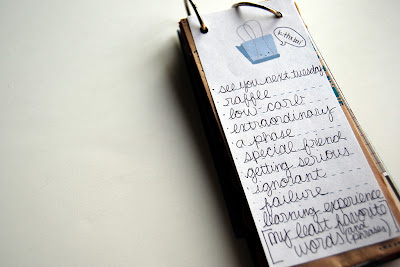 see you next tuesday
raffle
low-carb
extraordinary
a phase
special friend
getting serious
ignorant
failure
learning experience
[my least favorite
words (and phrases)]